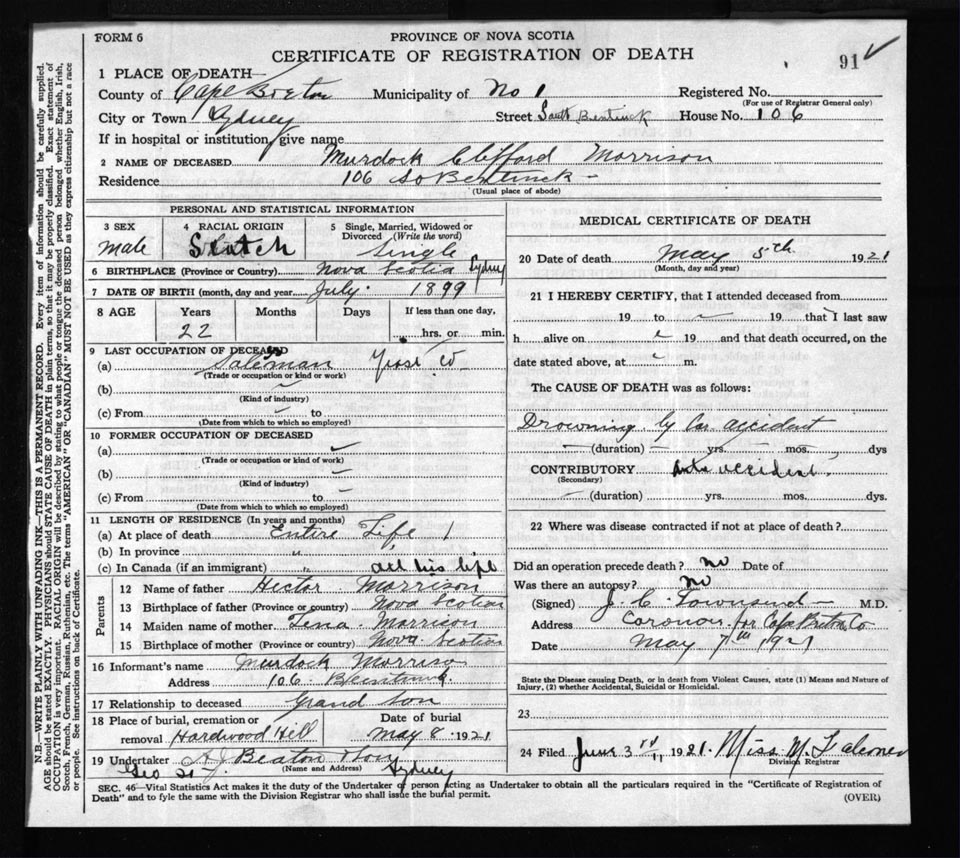 FORM 6
PROVINCE OF NOVA SCOTIA
CERTIFICATE OF REGISTRATION OF DEATH
91
1 PLACE OF DEATH—
County of Cape Breton Municipality of No 1 Registered No.
(For use of Registrar General only)
City or Town Sydney Street South Bentinck House No. 106
If in hospital or institution, give name
2 NAME OF DECEASED Murdock Clifford Morrison
Residence 106 So Bentinck
(Usual place of abode)
PERSONAL AND STATISTICAL INFORMATION
3 SEX
4 RACIAL ORIGIN
5 Single, Married, Widowed or Divorced (Write the word)
Male
Scotch
Single
6 BIRTHPLACE (Province or Country) Nova Scotia Sydney
7 DATE OF BIRTH (month, day and year July 1899
8 AGE Years Months Days If less than one day,
22 hrs. or min.
9 LAST OCCUPATION OF DECEASED
(a) Salesman Co
(Trade or occupation or kind or work)
(b)
(Kind of industry)
(c) From to
(Date from which to which so employed)
10 FORMER OCCUPATION OF DECEASED
(a)
(Trade or occupation or kind of work)
(b)
(Kind of industry)
(c) From to
(Date from which to which so employed)
11 LENGTH OF RESIDENCE (In years and months)
(a) At place of death Entire Life
(b) In province "
(c) In Canada (if an immigrant) " all his life
Parents
12 Name of father Hector Morrison
13 Birthplace of father (Province or country) Nova Scotia
14 Maiden name of mother Lena Morrison
15 Birthplace of mother (Province or country) Nova Scotia
16 Informant's name Murdock Morrison
Address 106 Bentinck
17 Relationship to deceased Grand son
18 Place of burial, cremation or removal Hardwood Hill
Date of burial May 8 1921
19 Undertaker A J Beaton
(Name and Address)
Geo St Sydney
MEDICAL CERTIFICATE OF DEATH
20 Date of death May 5th 1921
(Month, day and year)
21 I HEREBY CERTIFY, that I attended deceased from
19 to 19 that I last saw
h alive on 19 and that death occurred, on the
date stated above, at m.
The CAUSE OF DEATH was as follows:
Drowning by Car accident
(duration) yrs. mos. dys
CONTRIBUTORY Auto accident
(Secondary)
(duration) yrs. mos. dys.
22 Where was disease contracted if not at place of death?
Did an operation precede death? no Date of
Was there an autopsy? no
(Signed) J. C. Townsend M.D.
Address Coronor for Cape Breton Co
Date May 7th 1921
State the Disease causing Death, or in death from Violent Causes, state (1) Means and Nature of
Injury, (2) whether Accidental, Suicidal or Homicidal.
23
24 Filed June 3rd 1921. Miss M.
Division Registrar
SEC. 46—Vital Statistics Act makes it the duty of the Undertaker or person acting as Undertaker to obtain all the particulars required in the "Certificate of Registration of
Death" and to fyle the same with the Division Registrar who shall issue the burial permit.
(OVER)
N.B.—WRITE PLAINLY WITH UNFADING INK—THIS IS A PERMANENT RECORD. Every item of information should be carefully supplied.
AGE should be stated EXACTLY. PHYSICIANS should STATE CAUSE OF DEATH in plain terms, so that it may be properly classified. Exact statement of
OCCUPATION is very important. RACIAL ORIGIN will be described by stating to what people or tongue the deceased person belonged whether English, Irish,
Scotch, French, German, Russian, Ruthenian, etc. The terms "AMERICAN" OR "CANADIAN" MUST NOT BE USED as they express citizenship but not a race
or people. See instructions on back of Certificate.